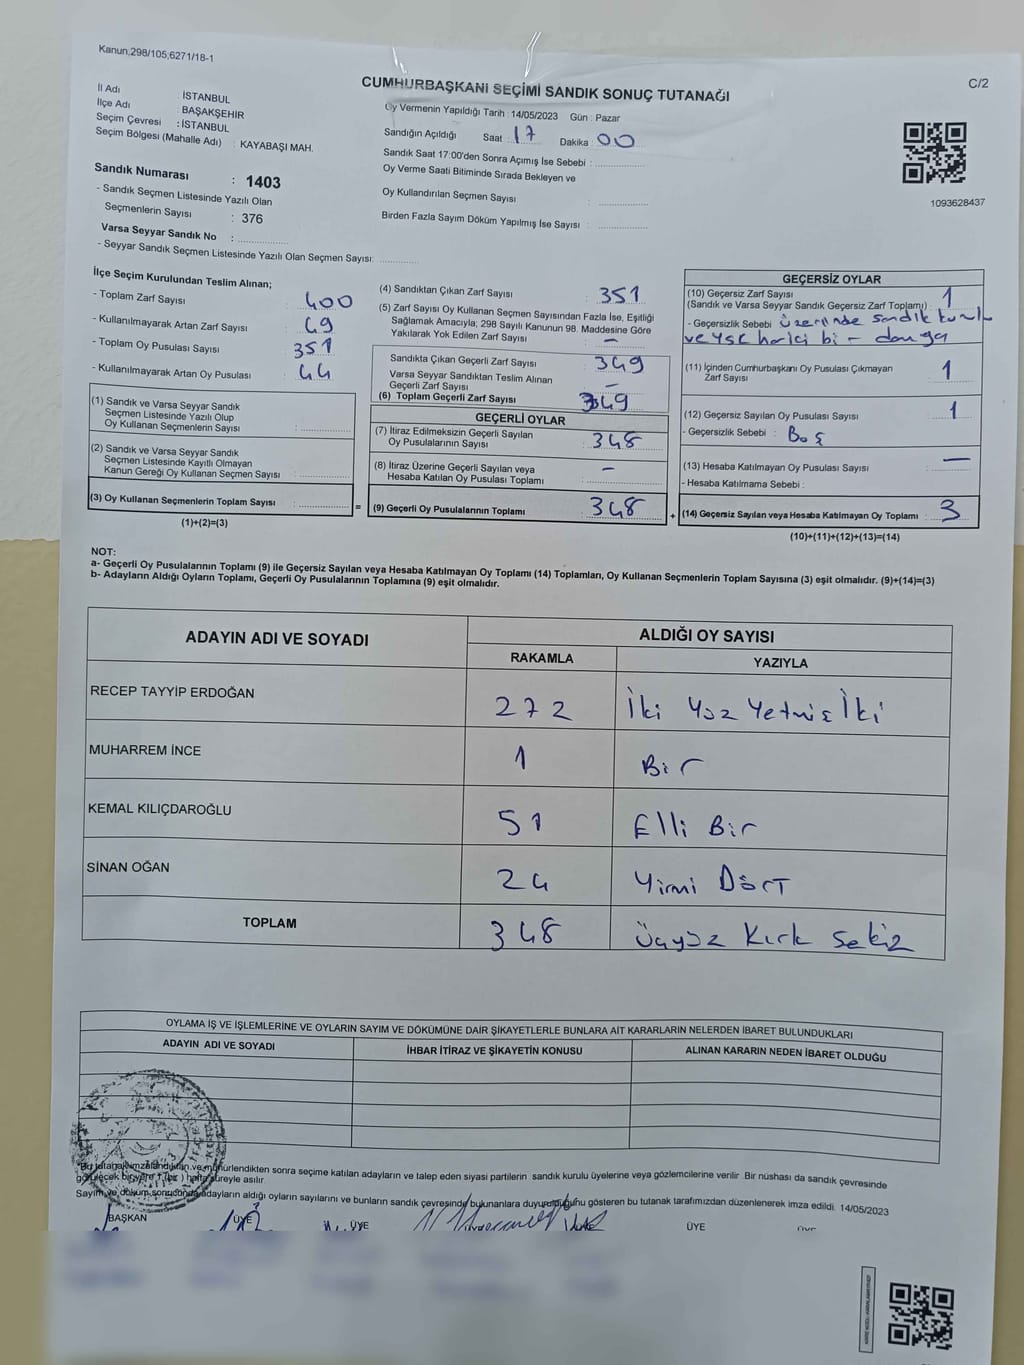 Kanun;298/105;6271/18-1
C/2
CUMHURBAŞKANI SEÇİMİ SANDIK SONUÇ TUTANAĞI
İl Adı : İSTANBUL
İlçe Adı : BAŞAKŞEHİR
Seçim Çevresi : İSTANBUL
Seçim Bölgesi (Mahalle Adı) : KAYABAŞI MAH.
Oy Vermenin Yapıldığı Tarih : 14/05/2023 Gün : Pazar
Sandığın Açıldığı Saat : 17 Dakika : 00
Sandık Saat 17:00'den Sonra Açımış İse Sebebi :
Oy Verme Saati Bitiminde Sırada Bekleyen ve
Oy Kullandırılan Seçmen Sayısı :
Birden Fazla Sayım Döküm Yapılmış İse Sayısı :
1093628437
Sandık Numarası : 1403
- Sandık Seçmen Listesinde Yazılı Olan
Seçmenlerin Sayısı : 376
Varsa Seyyar Sandık No :
- Seyyar Sandık Seçmen Listesinde Yazılı Olan Seçmen Sayısı:
İlçe Seçim Kurulundan Teslim Alınan;
- Toplam Zarf Sayısı : 400
- Kullanılmayarak Artan Zarf Sayısı : 49
- Toplam Oy Pusulası Sayısı : 351
- Kullanılmayarak Artan Oy Pusulası : 44
(1) Sandık ve Varsa Seyyar Sandık
Seçmen Listesinde Yazılı Olup
Oy Kullanan Seçmenlerin Sayısı :
(2) Sandık ve Varsa Seyyar Sandık
Seçmen Listesinde Kayıtlı Olmayan
Kanun Gereği Oy Kullanan Seçmen Sayısı :
(3) Oy Kullanan Seçmenlerin Toplam Sayısı : =
(1)+(2)=(3)
(4) Sandıktan Çıkan Zarf Sayısı : 351
(5) Zarf Sayısı Oy Kullanan Seçmen Sayısından Fazla İse, Eşitliği
Sağlamak Amacıyla; 298 Sayılı Kanunun 98. Maddesine Göre
Yakılarak Yok Edilen Zarf Sayısı : –
Sandıkta Çıkan Geçerli Zarf Sayısı : 349
Varsa Seyyar Sandıktan Teslim Alınan
Geçerli Zarf Sayısı : –
(6) Toplam Geçerli Zarf Sayısı : 349
GEÇERLİ OYLAR
(7) İtiraz Edilmeksizin Geçerli Sayılan
Oy Pusulalarının Sayısı : 348
(8) İtiraz Üzerine Geçerli Sayılan veya
Hesaba Katılan Oy Pusulası Toplamı : –
(9) Geçerli Oy Pusulalarının Toplamı : 348 +
GEÇERSİZ OYLAR
(10) Geçersiz Zarf Sayısı
(Sandık ve Varsa Seyyar Sandık Geçersiz Zarf Toplamı) : 1
- Geçersizlik Sebebi : üzerinde sandık kurulu
ve ysk harici bir damga
(11) İçinden Cumhurbaşkanı Oy Pusulası Çıkmayan
Zarf Sayısı : 1
(12) Geçersiz Sayılan Oy Pusulası Sayısı : 1
- Geçersizlik Sebebi : Boş
(13) Hesaba Katılmayan Oy Pusulası Sayısı : –
- Hesaba Katılmama Sebebi :
(14) Geçersiz Sayılan veya Hesaba Katılmayan Oy Toplamı : 3
(10)+(11)+(12)+(13)=(14)
NOT:
a- Geçerli Oy Pusulalarının Toplamı (9) ile Geçersiz Sayılan veya Hesaba Katılmayan Oy Toplamı (14) Toplamları, Oy Kullanan Seçmenlerin Toplam Sayısına (3) eşit olmalıdır. (9)+(14)=(3)
b- Adayların Aldığı Oyların Toplamı, Geçerli Oy Pusulalarının Toplamına (9) eşit olmalıdır.
ADAYIN ADI VE SOYADI ALDIĞI OY SAYISI
RAKAMLA YAZIYLA
RECEP TAYYİP ERDOĞAN 272 İki Yüz Yetmiş İki
MUHARREM İNCE 1 Bir
KEMAL KILIÇDAROĞLU 51 Elli Bir
SİNAN OĞAN 24 Yirmi Dört
TOPLAM 348 Üçyüz Kırk Sekiz
OYLAMA İŞ VE İŞLEMLERİNE VE OYLARIN SAYIM VE DÖKÜMÜNE DAİR ŞİKAYETLERLE BUNLARA AİT KARARLARIN NELERDEN İBARET BULUNDUKLARI
ADAYIN ADI VE SOYADI İHBAR İTİRAZ VE ŞİKAYETİN KONUSU ALINAN KARARIN NEDEN İBARET OLDUĞU
sonra seçime katılan adayların ve talep eden siyasi partilerin sandık kurulu üyelerine veya gözlemcilerine verilir. Bir nüshası da sandık çevresinde
süreyle asılır.
Sayım ve döküm sonucunda adayların aldığı oyların sayılarını ve bunların sandık çevresinde bulunanlara duyurulduğunu gösteren bu tutanak tarafımızdan düzenlenerek imza edildi. 14/05/2023
BAŞKAN ÜYE ÜYE ÜYE ÜYE